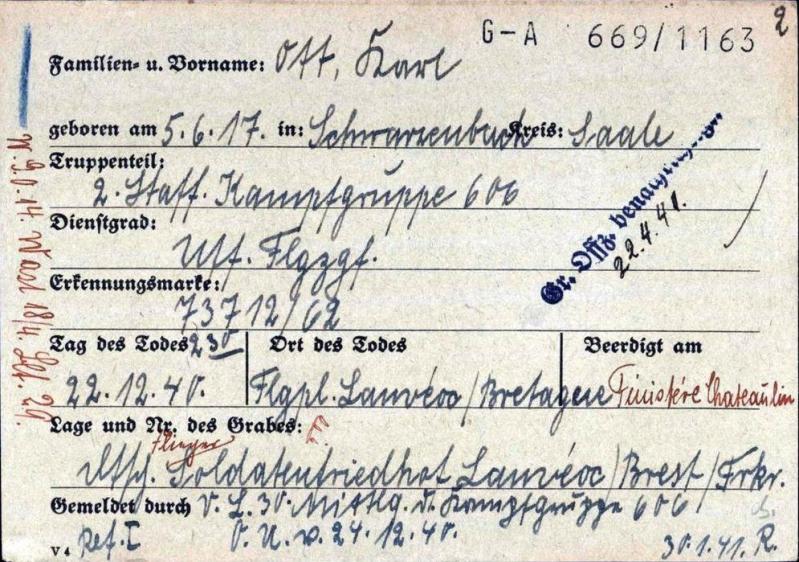 2
G-A 669/1163
Familien- u. Vorname: Ott, Karl
geboren am 5.6.17. in: Schwarzenbach Kreis: Saale
Truppenteil:
2. Staff. Kampfgruppe 606
Dienstgrad:
Uff. Flgzgf.
Gr. Offz. benachr.
22.4.41.
Erkennungsmarke:
73712/62
Tag des Todes 2³⁰ Ort des Todes Beerdigt am
22.12.40. Flgpl. Lanvéoc/Bretagne Finistére Chateaulin
Lage und Nr. des Grabes:
Flieger
Dtsch. Soldatenfriedhof Lanvéoc/Brest/Frkr.
Gemeldet durch V.L. 30. Mittlg. d. Kampfgruppe 606
V 4 Ref. I O.U. v. 24.12.40. 30.1.41. R.